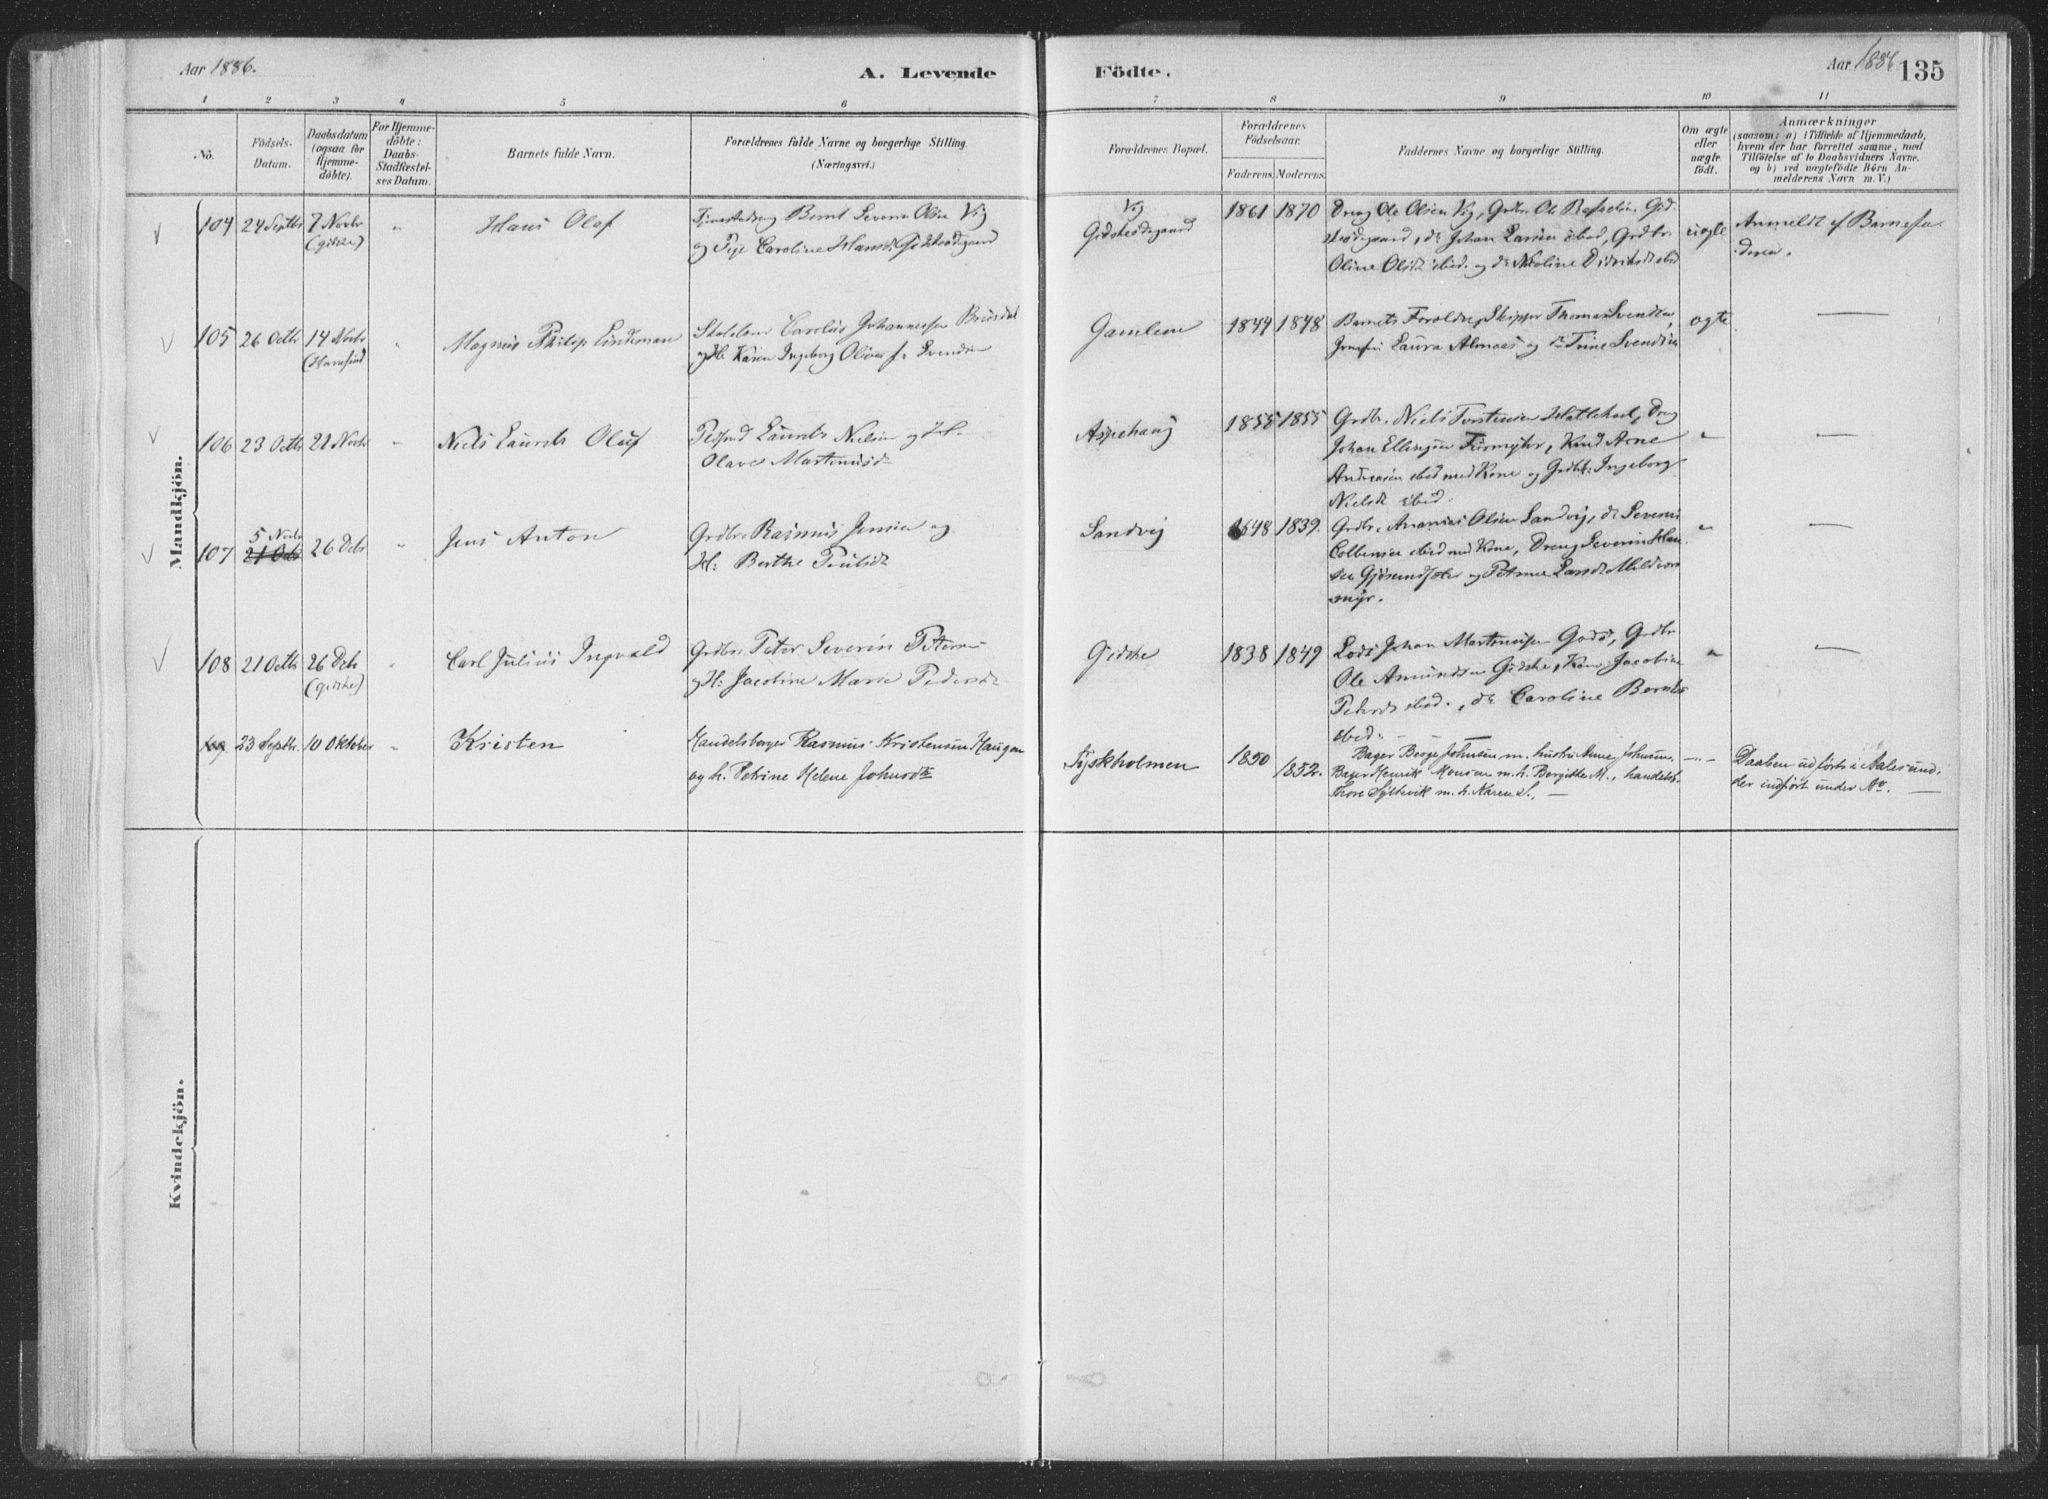 Aar 1886.
A. Levende
Födte.
Aar 1886
135
1
2
3
4
5
6
7
8
9
10
11
No.
Födsels-
Datum.
Daabsdatum
(ogsaa for
Hjemme-
döbte).
For Hjemme-
döbte:
Daabs-
Stadfæstel-
ses Datum.
Barnets fulde Navn.
Forældrenes fulde Navne og borgerlige Stilling.
(Næringsvei.)
Forældrenes Bopæl.
Forældrenes
Födselsaar.
Faderens.
Moderens.
Faddernes Navne og borgerlige Stilling.
Om ægte
eller
uægte
födt.
Anmærkninger
(saasom: a) i Tilfælde af Hjemmedaab,
hvem der har forrettet samme, med
Tilföielse af to Daabsvidners Navne.
og b) ved uægtefödte Börn An-
melderens Navn m. V.)
Mandkjön.
104
24 Septbr
7 Novbr
(Giske)
"
Hans Olaf
Tjenestedreng Bernt Severin Olsen Vig
og Pige Caroline Hansd Gidskeödegaard
Vig
Gidskeödegaard
1861
1870
Dreng Ole Olsen Vig, Grdbr. Ole Gid-
skeödegaard, do Johan Larsen ibid, Grdbr.
Oline Olsdt ibid. og do Nicoline Didriksdt ibd
uægte
Anmeldt af Barnefa-
deren.
105
26 Octbr
14 Novbr
"
Magnus Philip Lindeman
Carolus Johannessen Brusdal
og H. Karen Ingeborg Olive f. Svendsen
Gamlem
1844
1848
Barnets Forældre, Skipper Thomas Svendsen,
Jomfru Laura Almaas og do Trine Svendsen
ægte
—
106
23 Octbr
21 Novbr
"
Niels Laurits Oluf
Laurits Nielsen og H.
Olave Martinusd.
Aspehaug
1855
1855
Grdbr. Niels Torstensen Hattehoel, Dreng
Johan Ellingsen Furmyhr, Knud Arne
Andreasen ibid med Kone og Grdbr. Ingeborg
Nielsdt ibid.
"
—
107
5 Novbr
21 Octr
26 Debr
"
Jens Anton
Grdbr. Rasmus Jensen og
H: Berthe Poulsdt
Sandvig
1848
1839.
Grdbr. Ananias Olsen Sandvig, do Severin
Colbensen ibid med Kone, Dreng Severin Han-
sen og Petrine Larsdt
myr.
"
—
108
21 Octbr
26 Debr
(Gidske)
"
Carl Julius Ingvald
Grdbr. Peter Severin Petersen
og H: Jacobine Marie Pedersdt
Gidske
1838
1849
Lods Johan Martinusen Godö, Grdbr
Ole Amundsen Gidske, Kone Jacobine
Petersdt ibid., do Caroline Berntsd
ibid.
"
—
109
23 Septbr.
10 Oktober
"
Kristen
Handelsborger Rasmus Kristensen Haugen
og h. Petrine Helene Johnsdtr
Tyskholmen
1850
1852.
Bager Berge Johnsen m. hustru Anne Johnsen,
Bager Henrik Monsen m. h. Bergitte M., handelsb.
Thore Syltevik m. h. Karen S. —
—"—
Daaben udförts i Aalesund,
der indfört under No. —
Kvindekjön.